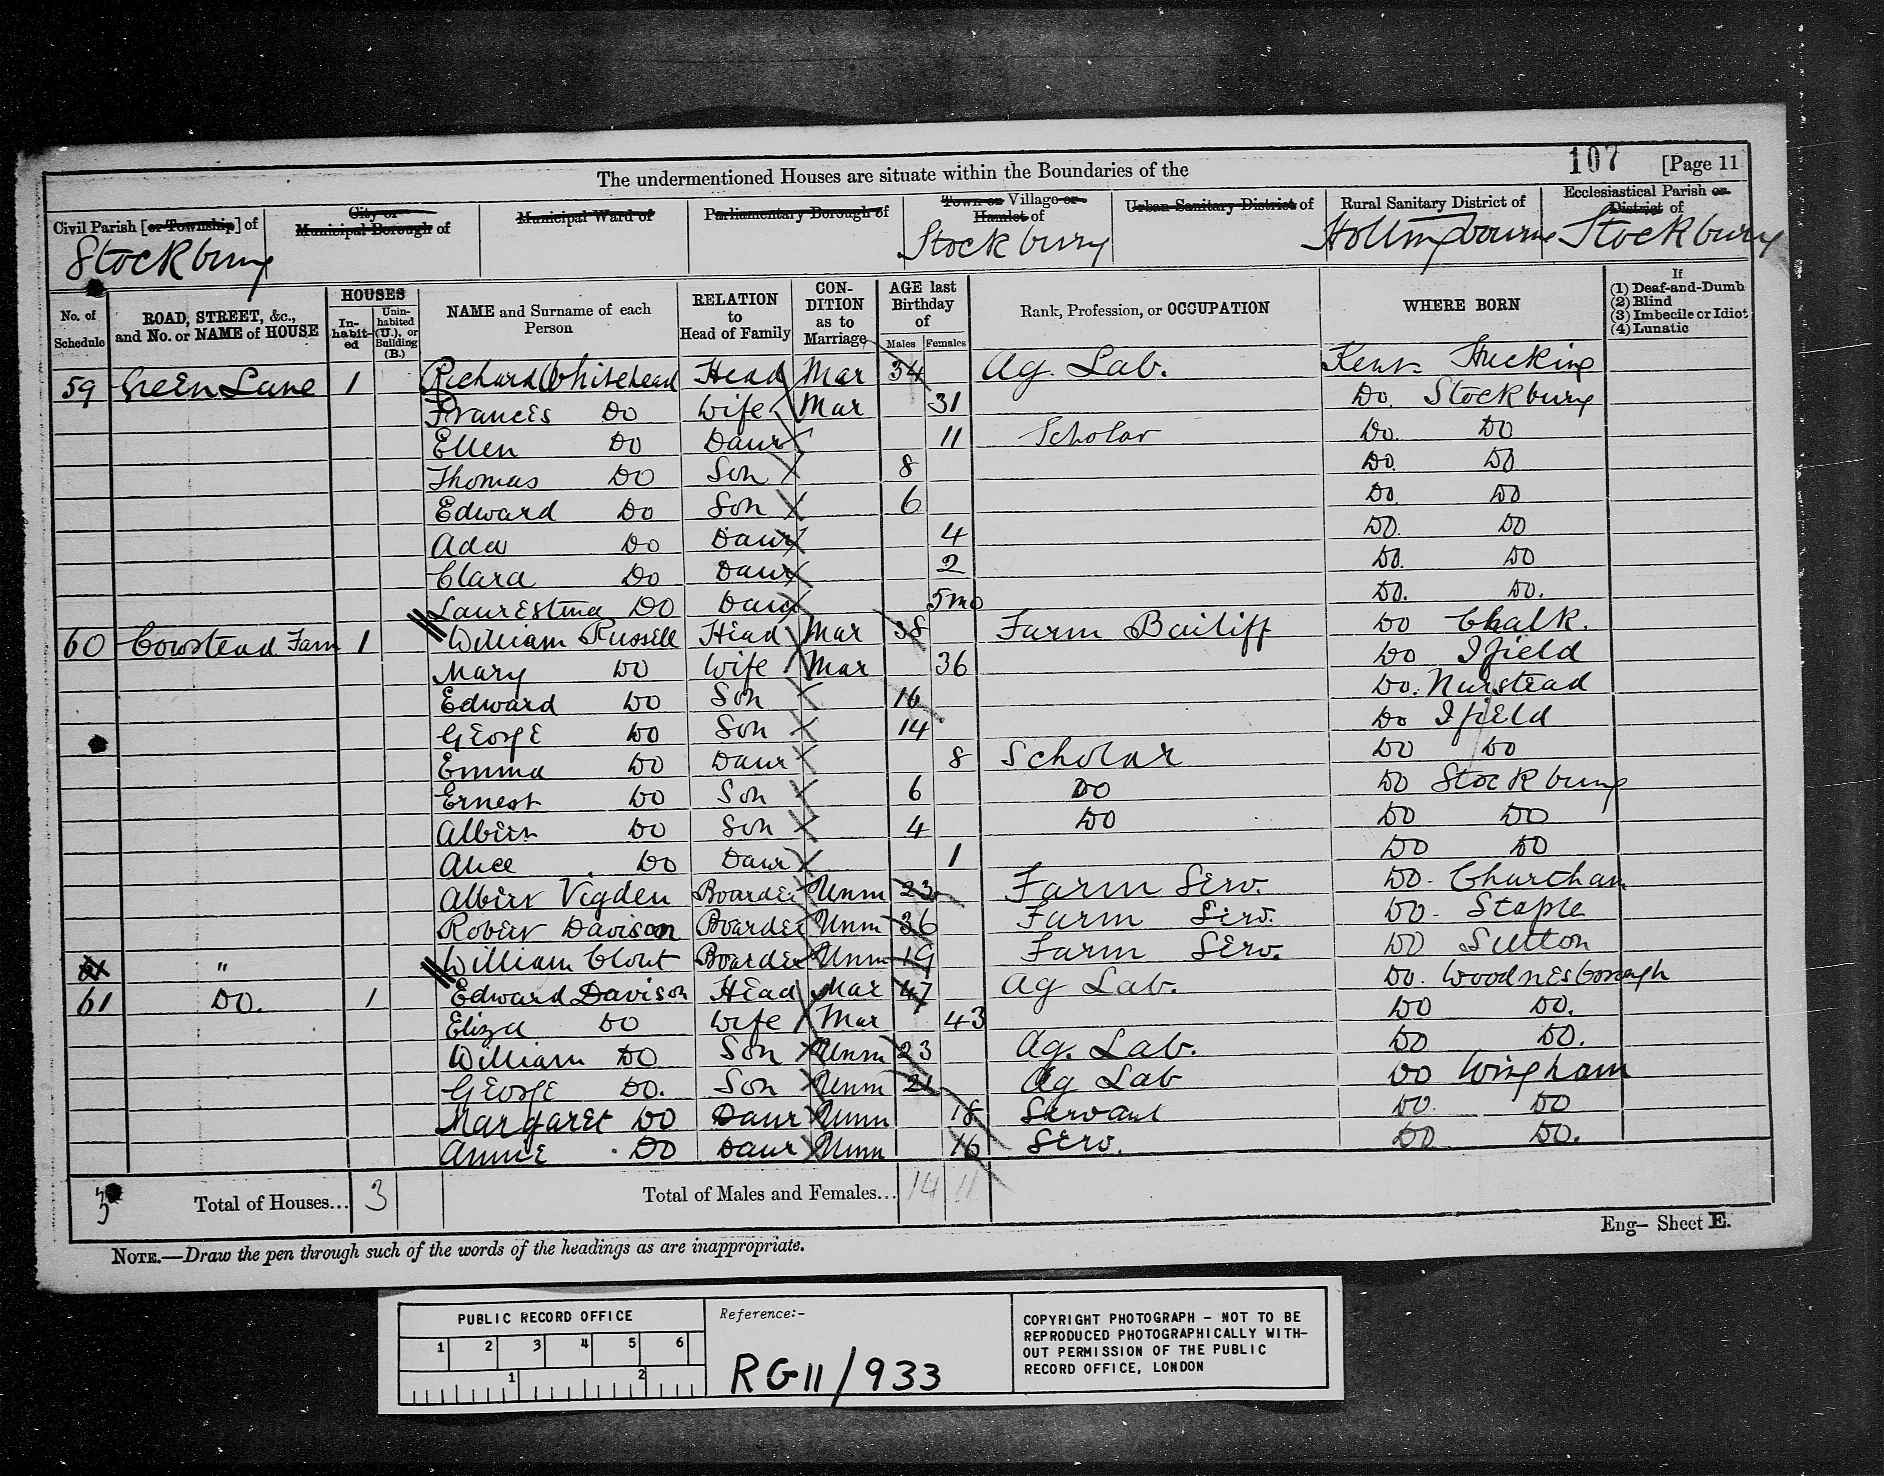 107 [Page 11
The undermentioned Houses are situate within the Boundaries of the
Civil Parish [or Township] of
Stockbury
City or
Municipal Borough of
Municipal Ward of
Parliamentary Borough of
Town or Village or
Hamlet of
Stockbury
Urban Sanitary District of
Rural Sanitary District of
Hollingbourne
Ecclesiastical Parish or
District of
Stockbury
No. of Schedule
ROAD, STREET, &c., and No. or NAME of HOUSE
HOUSES
In-habit-ed
Unin-habited (U.), or Building (B.)
NAME and Surname of each Person
RELATION to Head of Family
CON-DITION as to Marriage
AGE last Birthday of
Males Females
Rank, Profession, or OCCUPATION
WHERE BORN
If
(1) Deaf-and-Dumb
(2) Blind
(3) Imbecile or Idiot
(4) Lunatic
59 Green Lane 1 Richard Whitehead Head Mar 34 Ag. Lab. Kent Hucking
Frances Do Wife Mar 31 Do. Stockbury
Ellen Do Daur 11 Scholar Do. Do
Thomas Do Son 8 Do. Do
Edward Do Son 6 Do. Do
Ada Do Daur 4 Do. Do
Clara Do Daur 2 Do. Do
Laurestina Do Daur 5mo Do. Do.
60 Cowstead Farm 1 William Russell Head Mar 38 Farm Bailiff Do Chalk.
Mary Do Wife Mar 36 Do Ifield
Edward Do Son 16 Do. Nurstead
George Do Son 14 Do Ifield
Emma Do Daur 8 Scholar Do Do
Ernest Do Son 6 Do Do Stockbury
Albert Do Son 4 Do Do Do
Alice Do Daur 1 Do Do
Albert Vigden Boarder Unm 23 Farm Serv. Do. Chartham
Robert Davison Boarder Unm 36 Farm Serv. Do. Staple
" William Clout Boarder Unm 19 Farm Serv. Do Sutton
61 Do. 1 Edward Davison Head Mar 47 Ag Lab. Do. Woodnesborough
Eliza Do Wife Mar 43 Do Do.
William Do Son Unm 23 Ag. Lab. Do Do.
George Do. Son Unm 21 Ag Lab Do Wingham
Margaret Do Daur Unm 18 Servant Do. Do
Annie Do Daur Unm 16 Serv. Do Do.
3 Total of Houses... 3 Total of Males and Females... 14 11
Eng— Sheet E.
NOTE.—Draw the pen through such of the words of the headings as are inappropriate.
PUBLIC RECORD OFFICE
1 2 3 4 5 6
1 2
Reference:-
RG11/933
COPYRIGHT PHOTOGRAPH - NOT TO BE
REPRODUCED PHOTOGRAPHICALLY WITH-
OUT PERMISSION OF THE PUBLIC
RECORD OFFICE, LONDON